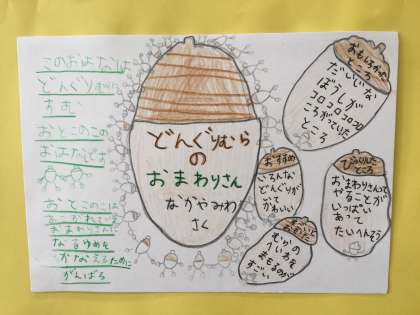 このおはなしは
どんぐりむらに
すむ
おとこのこの
おはなしです
おとこのこは
おまわりさんに
なるゆめを
かなえるために
がんばる
どんぐりむら
の
おまわりさん
なかやみわ
さく
おもしろかった
ところ
だいじな
ぼうしが
コロコロコロコロ
ころがっていた
ところ
おすすめ
いろんな
どんぐりが
でて
かわいい
びっくりした
ところ
おまわりさんて
やることが
いっぱい
あって
たいへんそう
むらの
へいわを
まもるのが
すごい